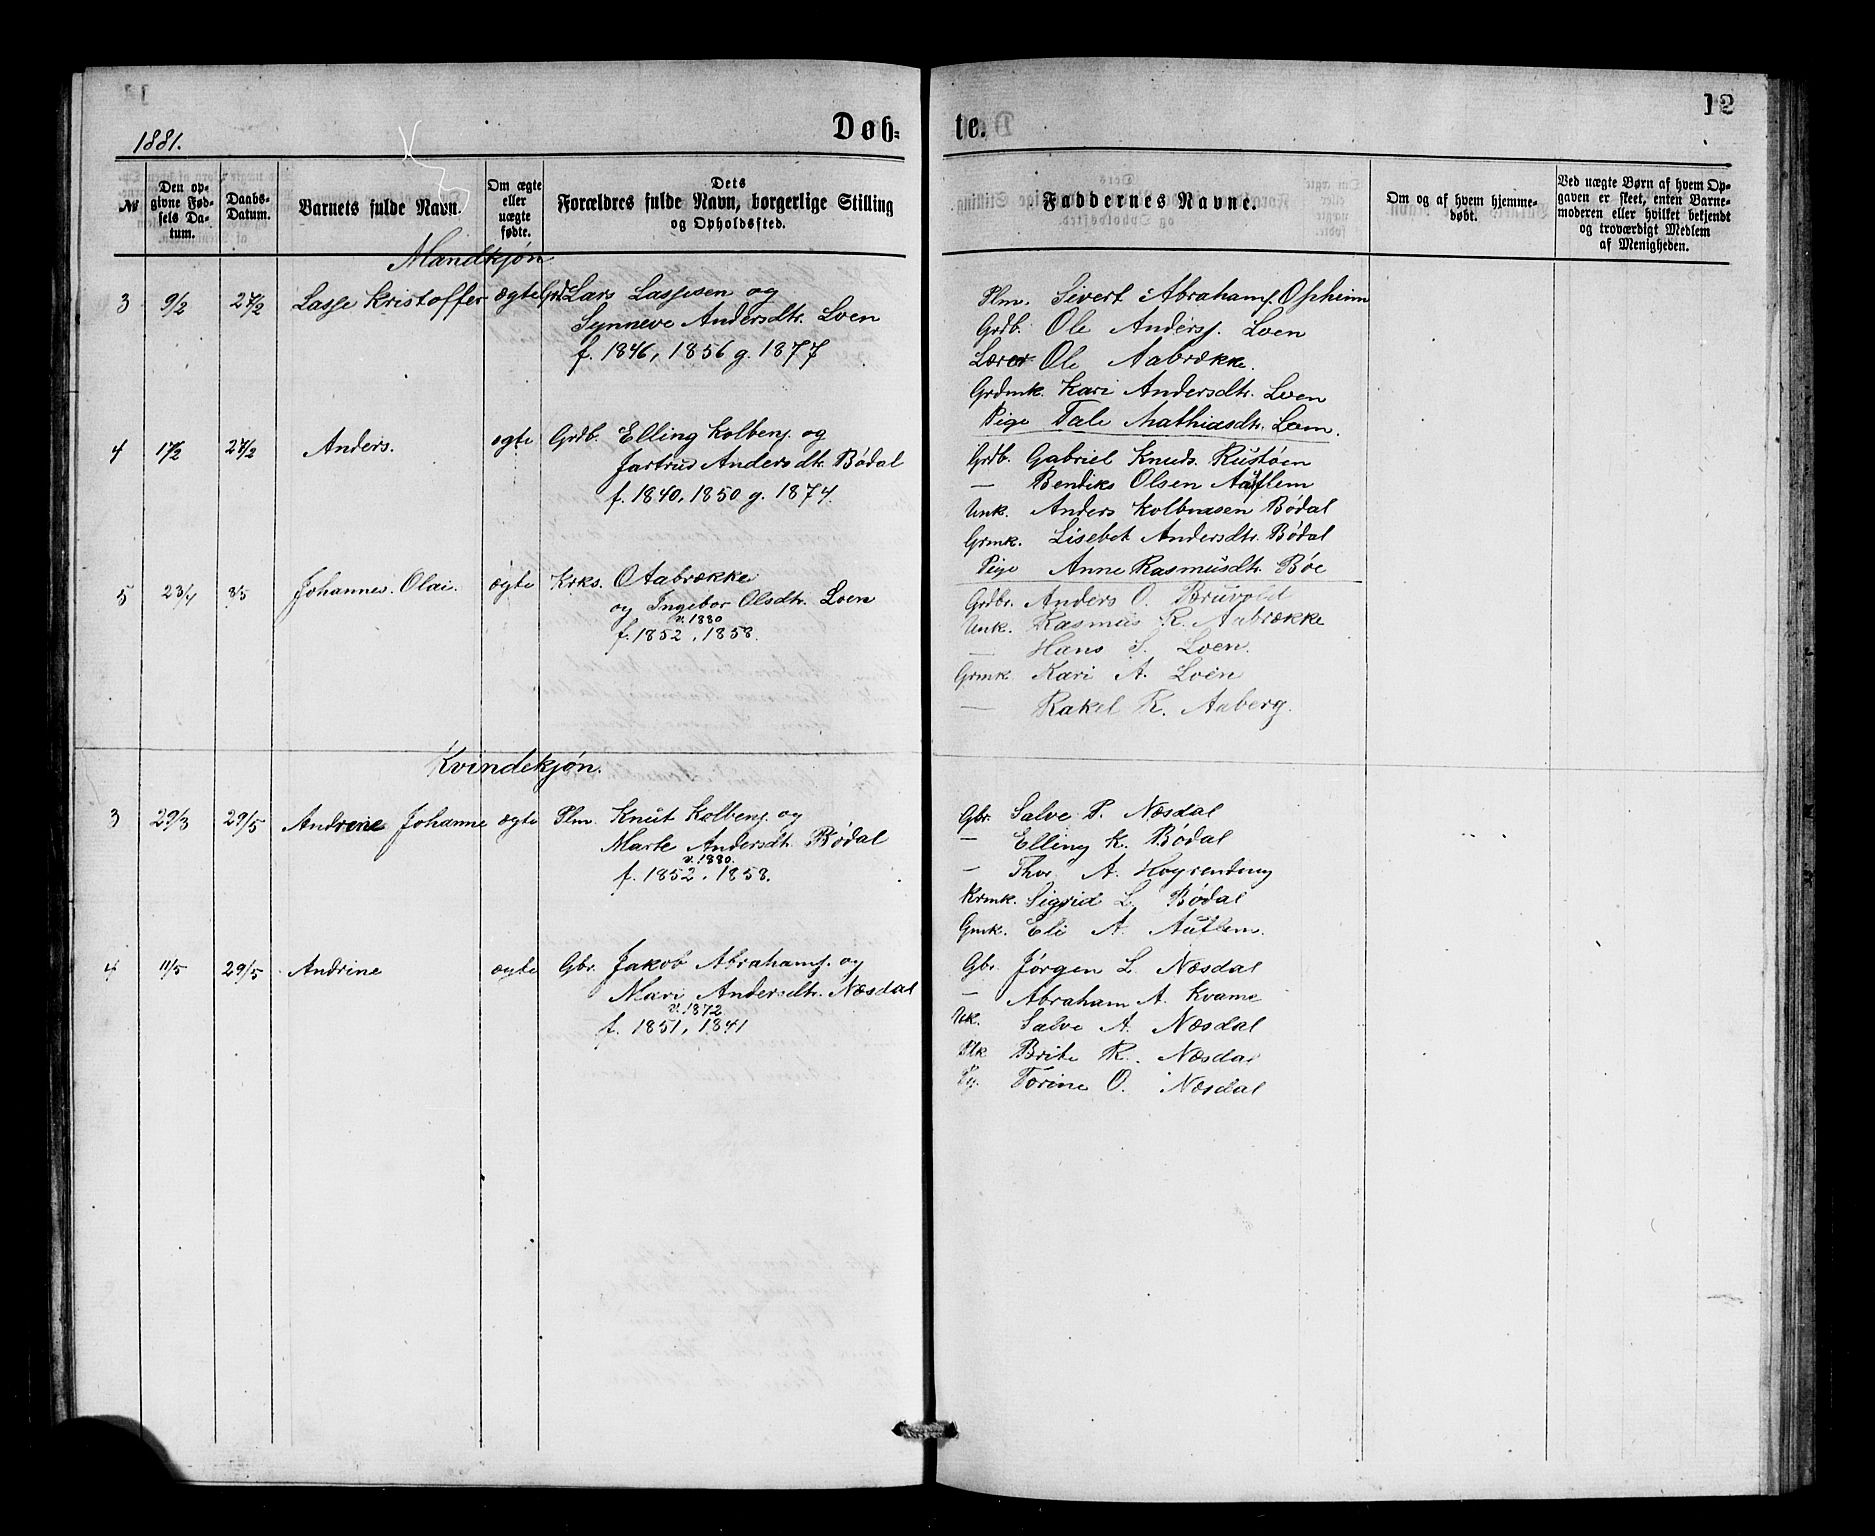 1881.
Døb-
te.
12
№
Den op-
givne Fød-
sels Da-
tum.
Daabs-
Datum.
Barnets fulde Navn.
Om ægte
eller
uægte
fødte.
Dets
Forældres fulde Navn, borgerlige Stilling
og Opholdssted.
Faddernes Navne.
Om og af hvem hjemme-
døbt.
Ved uægte Børn af hvem Op-
gaven er skeet, enten Barne-
moderen eller hvilket bekjendt
og troværdigt Medlem
af Menigheden.
Mandkjøn
3 9/2 27/2 Lasse Kristoffer ægte Grd. Lars Lassesen og
Synneve Andersdtr. Loen
f. 1846, 1856 g. 1877
Plm. Sivert Abrahams. Opheim
Grdb. Ole Anders. Loen
Lærer Ole Aabrække.
Grdmk. Kari Andersdtr. Loen
Pige Tale Mathiasdtr. Loen.
4 17/2 27/2 Anders. ægte Grdb. Elling Kolbens. og
Jartrud Andersdtr. Bødal
f. 1840, 1850 g. 1874.
Grdb. Gabriel Knuds. Rustøen
— Bendiks Olsen Auflem
Unk. Anders Kolbensen Bødal
Grmk. Lisebet Andersdtr. Bødal
Pige Anne Rasmusdtr. Bøe
5 23/4 8/5 Johannes Olai. ægte Krks. O Aabrække
og Ingebor Olsdtr. Loen
v. 1880
f. 1852, 1858.
Grdbr. Anders O. Bruvold
Unk. Rasmus R. Aabrække
— Hans S. Loen.
Grmk. Kari A. Loen
— Rakel R. Aaberg.
Kvindekjøn.
3 29/3 29/5 Andrine Johanne ægte Plm. Knut Kolbens. og
Marte Andersdtr. Bødal
v. 1880.
f. 1852, 1858.
Gbr. Salve P. Næsdal
— Elling K. Bødal
— Thor A. Hogrending
Krmk. Sigrid L. Bødal
Gmk. Eli A. Auflem.
4 11/5 29/5 Andrine ægte Gbr. Jakob Abrahams. og
Mari Andersdtr. Næsdal
v. 1872
f. 1851, 1841
Gbr. Jørgen L. Næsdal
— Abraham A. Kvame
Uk. Salve A. Næsdal
Plk Brite R. Næsdal
Pg. Torine O. Næsdal